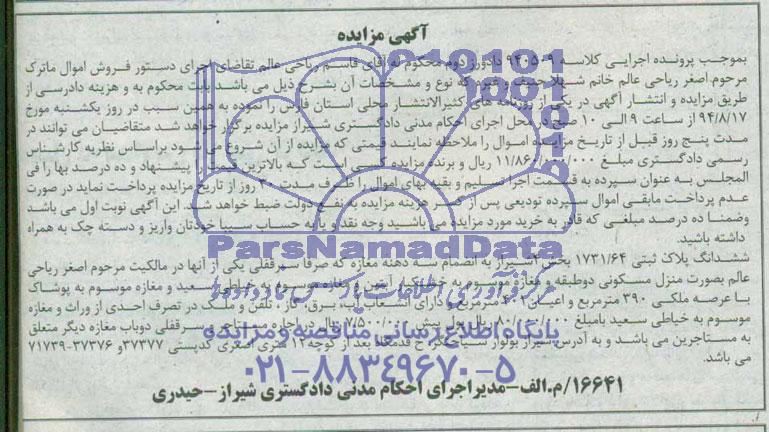 آگهی مزایده
بموجب پرونده اجرایی کلاسه ۹۴۰۵۰۹ دادورز دوم محکوم له آقای قاسم ریاحی عالم تقاضای اجرای دستور فروش اموال ماترک
مرحوم اصغر ریاحی عالم خانم شهلا و غیره که نوع و مشخصات آن بشرح ذیل می باشد بابت محکوم به و هزینه دادرسی از
طریق مزایده و انتشار آگهی در یکی از روزنامه های کثیرالانتشار محلی استان فارس را نموده به همین سبب در روز یکشنبه مورخ
۹۴/۸/۱۷ از ساعت ۹ الی ۱۰ صبح در محل اجرای احکام مدنی دادگستری شیراز مزایده برگزار خواهد شد متقاضیان می توانند در
مدت پنج روز قبل از تاریخ مزایده اموال را ملاحظه نمایند قیمتی که مزایده از آن شروع می شود براساس نظریه کارشناس
رسمی دادگستری مبلغ ریال و برنده مزایده کسی است که بالاترین قیمت را پیشنهاد و ده درصد بها را فی
المجلس به عنوان سپرده به قسمت اجرا تسلیم و بقیه بهای اموال را ظرف مدت روز از تاریخ مزایده پرداخت نماید در صورت
عدم پرداخت مابقی اموال سپرده تودیعی پس از کسر هزینه مزایده به نفع دولت ضبط خواهد شد. این آگهی نوبت اول می باشد
وضمنا ده درصد مبلغی که قادر به خرید مورد مزایده می باشید وجه نقد و یا به حساب سیبا خودتان واریز و دسته چک به همراه
داشته باشید.
ParsNamadData
ششدانگ پلاک ثبتی ۱۷۳۱/۶۴ بخش شیراز به انضمام سه دهنه مغازه که صرفا سرقفلی یکی از آنها در مالکیت مرحوم اصغر ریاحی
عالم بصورت منزل مسکونی دوطبقه و مغازه موسوم به و مغازه موسوم به خیاطی سعید و مغازه موسوم به پوشاک
با عرصه ملکی ۳۹۰ مترمربع و اعیانی مترمربع و دارای انشعاب آب، برق، گاز، تلفن و ملک در تصرف احدی از وراث و مغازه
موسوم به خیاطی سعید بامبلغ ریال پول پیش ریال در اجاره و سرقفلی دوباب مغازه دیگر متعلق
به مستاجرین می باشد و به آدرس شیراز بولوار سیاحتگر خ قدمگاه بعد از کوچه ۱۲ متری اصغری کدپستی ۳۷۳۷۷ و ۳۷۳۷۶-۷۱۷۳۹
می باشد.
پایگاه اطلاع رسانی مناقصه و مزایده
۰۲۱-۸۸۳۴۹۶۷۰-۵
۱۶۶۴۱/م.الف-مدیر اجرای احکام مدنی دادگستری شیراز-حیدری